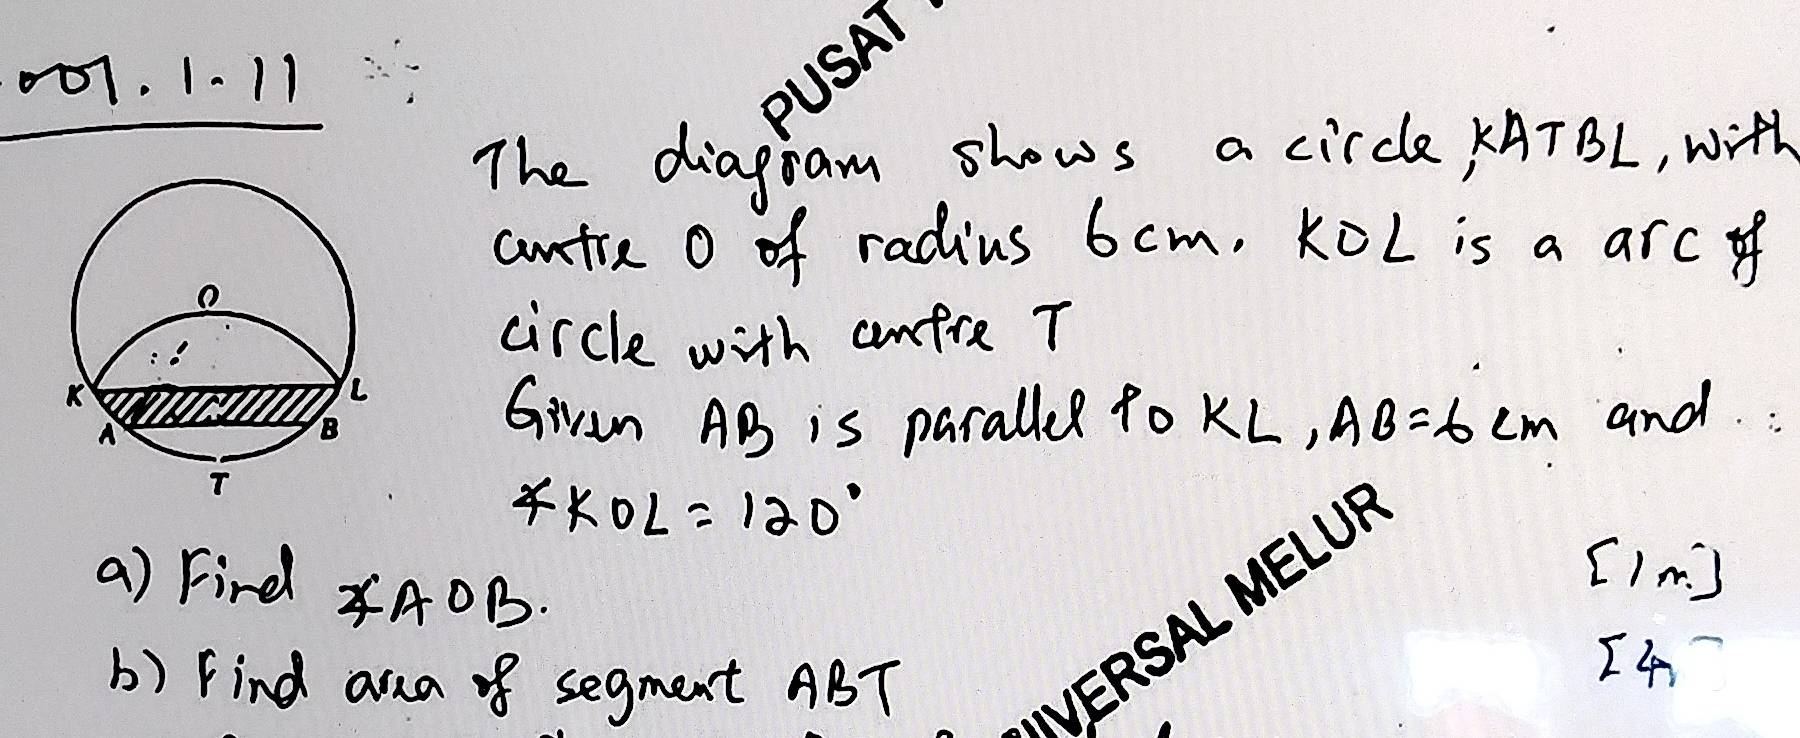 001.1-11
PUSAT
The diagram shows a circle, KATBL, with
centre O of radius 6cm. KOL is a arc of
circle with centre T
Given AB is parallel to KL, AB=6cm and
∡KOL=120°
a) Find ∡AOB. [1m]
b) Find area of segment ABT [4
O
K
L
A
B
T
UNIVERSAL MELUR